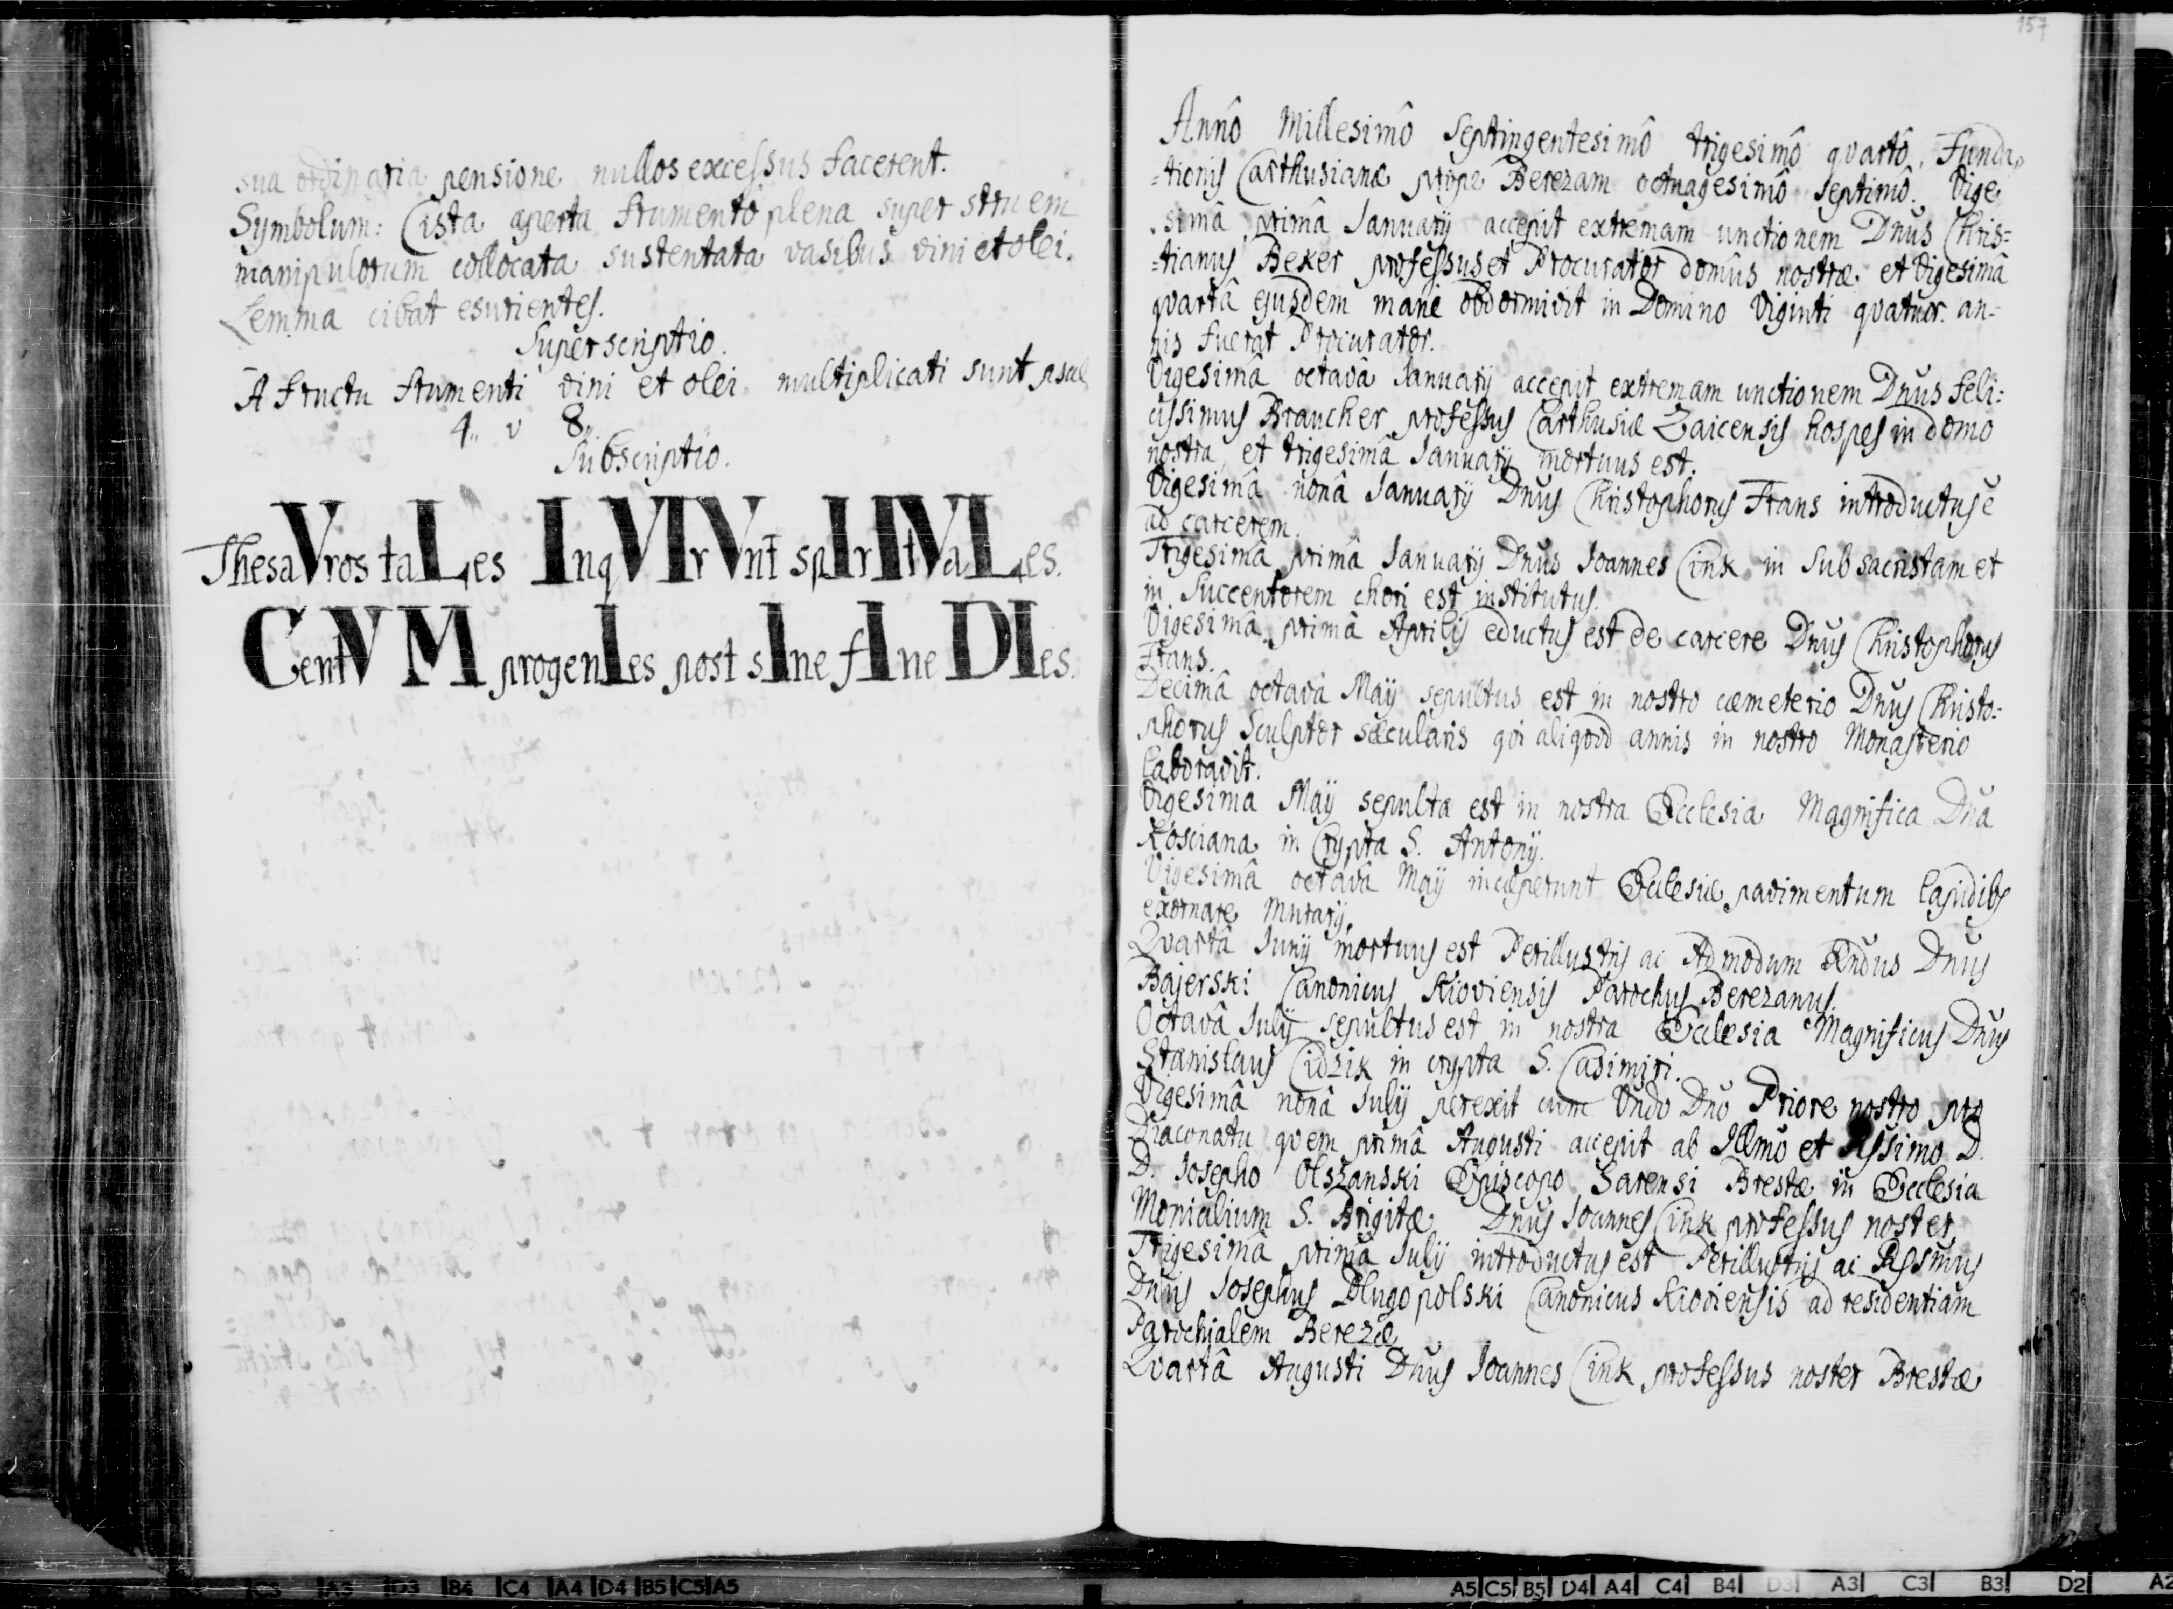 sua ordinaria pensione nullos excessus facerent.
Symbolum: Cista aperta frumentô plena super struem
manipulorum collocata sustentata vasibus vini et olei.
Lemma cibat esurientes.
Superscriptio.
A fructu frumenti vini et olei multiplicati sunt psal
4,, v 8,,
Subscriptio.
ThesaVros taLes InqVIrVnt spIrItVaLes.
CentVM progenIes post sIne fIne DIes.
157
Annô Millesimô Septingentesimô trigesimô qvartô, Funda
=tionis Carthusianæ prope Berezam octuagesimô septimô. Vige
simâ primâ Ianuarij accepit extremam unctionem Dnus Chris=
=tianus Beker professus et Procurator domûs nostræ et Vigesimâ
qvartâ ejusdem mane obdormivit in Domino Viginti qvatuor an=
nis fuerat Procurator.
Vigesimâ octavâ Ianuarij accepit extremam unctionem Dnus Feli=
cissimus Braucher professus Carthusiæ Zaicensis hospes in domo
nostra, et trigesimâ Ianuarij mortuus est.
Vigesimâ nonâ Ianuarij Dnus Christophorus Frans introductus ē
ad carcerem.
Trigesimâ primâ Ianuarij Dnus Ioannes Cink in Subsacristam et
in Succentorem chori est institutus.
Vigesimâ primâ Aprilis eductus est de carcere Dnus Christophorus
Frans.
Decimâ octavâ Maij sepultus est in nostro cæmeterio Dnus Christo=
phorus Sculptor sæcularis qvi aliqvod annis in nostro Monasterio
laboravit.
Vigesima Maij sepulta est in nostra Ecclesia Magnifica Dna
Kosciana in Crypta S. Antonij.
Vigesimâ octavâ Maij incæperunt Ecclesiæ pavimentum lapidibs
exornare Murarij.
Qvartâ Iunij mortuus est Perillustris ac Admodum Rndus Dnus
Bajerski Canonicus Kioviensis Parochus Berezanus.
Octavâ Iulij sepultus est in nostra Ecclesia Magnificus Dnus
Stanislaus Cidzik in crypta S. Casimiri.
Vigesimâ nonâ Iulij perexit cum Vndo Dno Priore nostro pro
Diaconatu qvem primâ Augusti accepit ab Illmo et Rssimo D.
D. Iosepho Olszanski Episcopo Sarensi Brestæ in Ecclesia
Monialium S. Brigitæ Dnus Ioannes Cink professus noster
Trigesimâ primâ Iulij introductus est Perillustris ac Rssmus
Dnus Iosephus Dlugopolski Canonicus Kioviensis ad residentiam
Parochialem Berezæ
Qvartâ Augusti Dnus Ioannes Cink professus noster Brestæ
C3 A3 D3 B4 C4 A4 D4 B5 C5 A5
A5 C5 B5 D4 A4 C4 B4 D3 A3 C3 B3 D2 A2